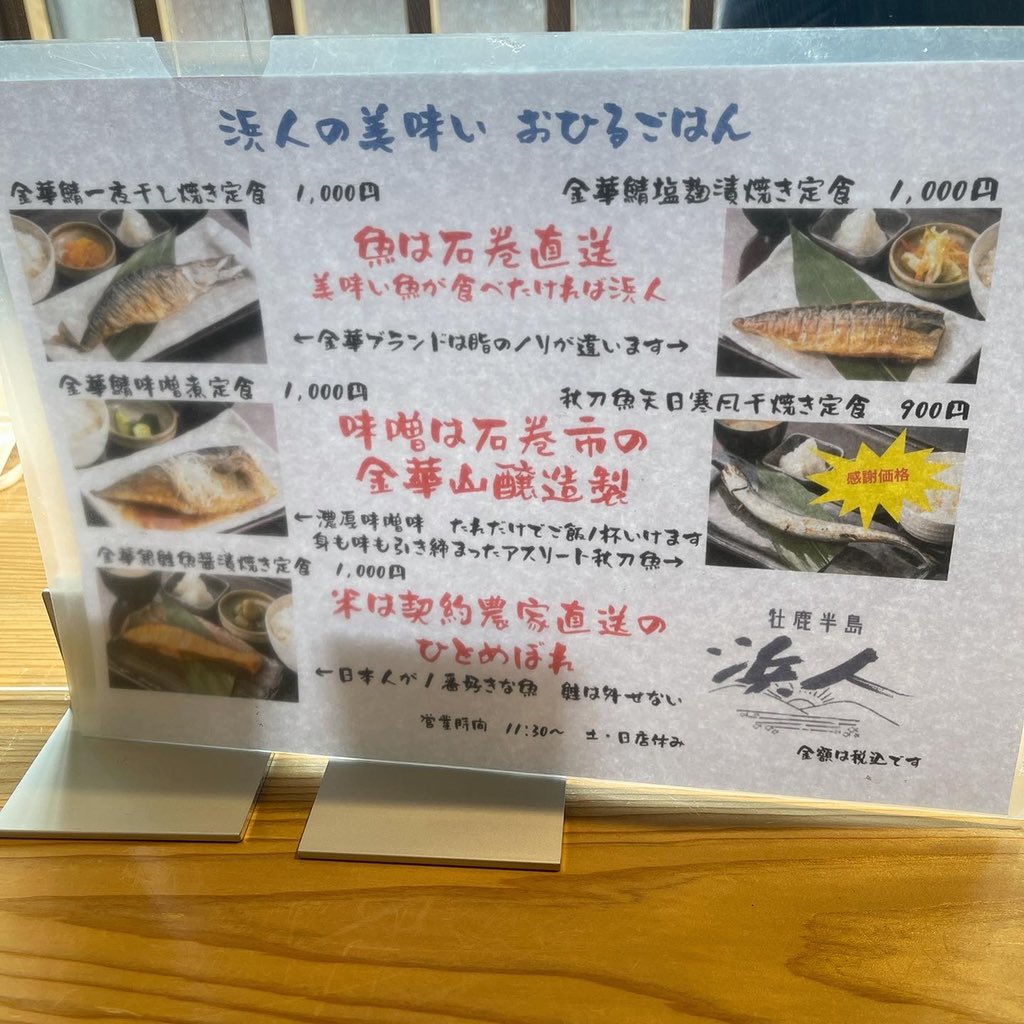 浜人の美味い おひるごはん
金華鯖一夜干し焼き定食 1,000円
金華鯖塩麹漬焼き定食 1,000円
魚は石巻直送
美味い魚が食べたければ浜人
←金華ブランドは脂のノリが違います→
金華鯖味噌煮定食 1,000円
秋刀魚天日寒風干焼き定食 900円
味噌は石巻市の
金華山醸造製
感謝価格
←濃厚味噌味 たれだけでご飯1杯いけます
身も味も引き締まったアスリート秋刀魚→
金華銀鮭魚醤漬焼き定食 1,000円
米は契約農家直送の
ひとめぼれ
←日本人が1番好きな魚 鮭は外せない
牡鹿半島
浜人
営業時間 11:30〜 土・日店休み
金額は税込です